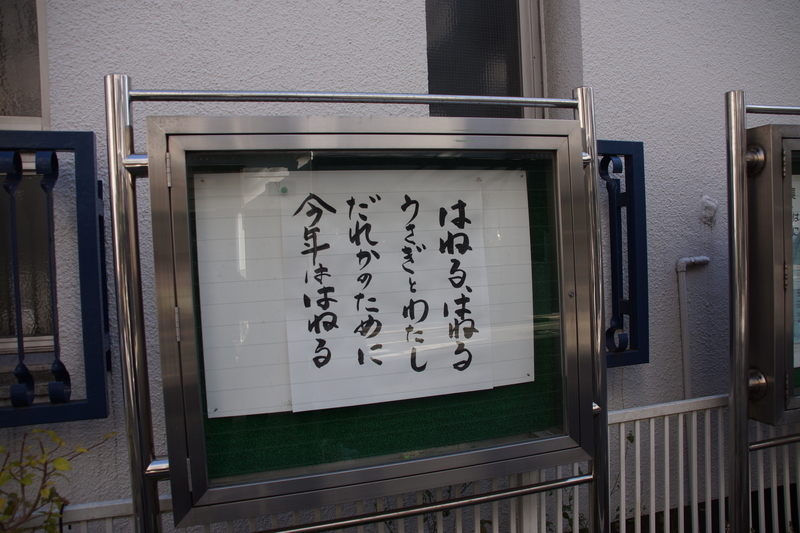 はねる、はねる
うさぎとわたし
だれかのために
今年ははねる